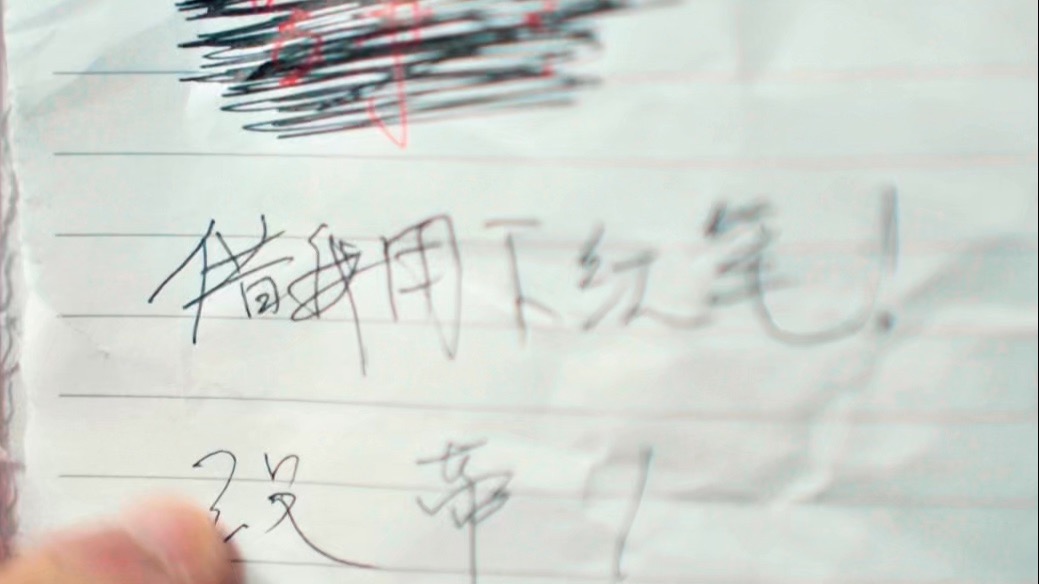 借我用下红笔！
没带！